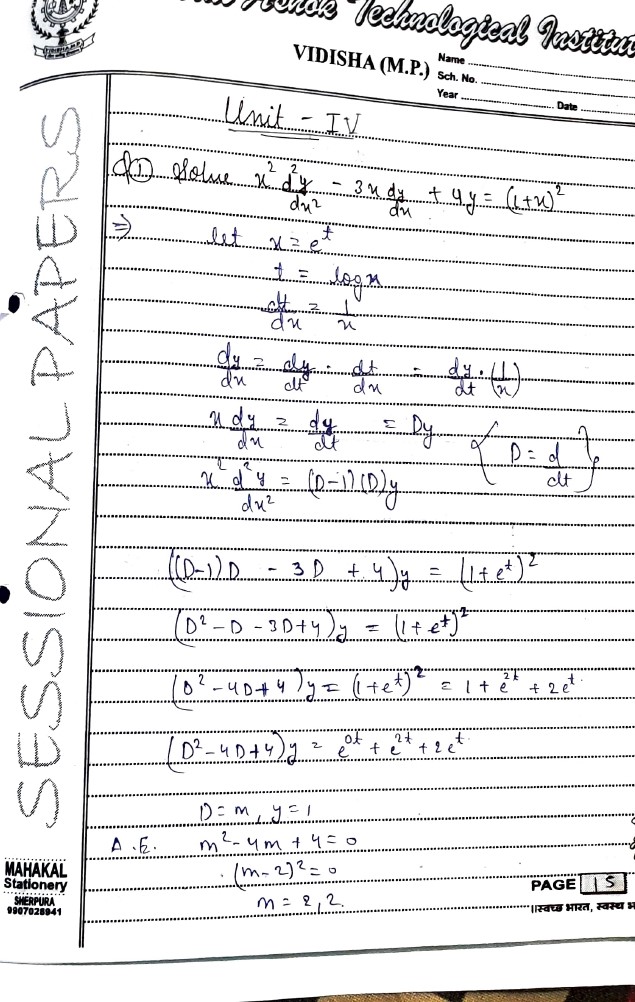 Ashok Technological Institut
VIDISHA (M.P.)
Name
Sch. No.
Year
Date
SESSIONAL PAPERS
Unit - IV
Q① Solve x² d²y/dx² - 3x dy/dx + 4y = (1+x)²
⇒ let x = e^t
t = log x
dt/dx = 1/x
dy/dx = dy/dt · dt/dx = dy/dt · (1/x)
x dy/dx = dy/dt = Dy { D = d/dt }
x² d²y/dx² = (D-1)(D)y
((D-1)D - 3D + 4)y = (1+e^t)²
(D² - D - 3D+4)y = (1+e^t)²
(D² - 4D+4)y = (1+e^t)² = 1 + e^2t + 2e^t.
(D² - 4D+4)y = e^0t + e^2t + 2e^t.
D = m, y = 1
A.E. m² - 4m + 4 = 0
(m-2)² = 0
m = 2, 2.
MAHAKAL
Stationery
SHERPURA
9907028941
PAGE 15
॥स्वच्छ भारत, स्वस्थ भ